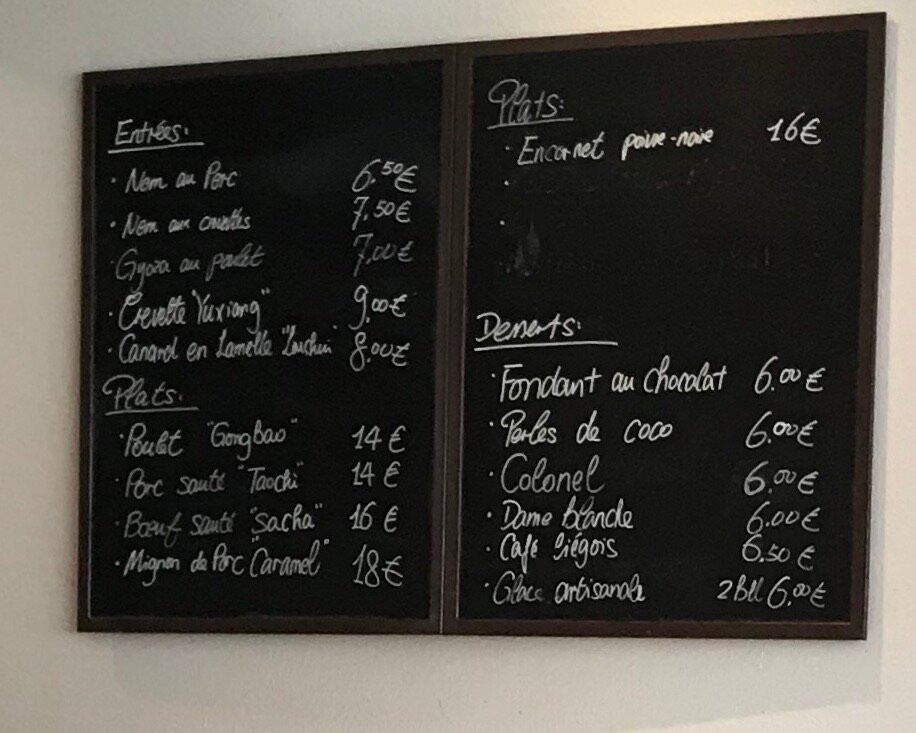 Entrées:
· Nem au Porc 6.50€
· Nem aux crevettes 7.50€
· Gyoza au poulet 7,00€
· Crevette "Yuxiang" 9,00€
· Canard en Lamelle 8,00€
Plats:
· Poulet "GongBao" 14€
· Porc sauté "Taochi" 14€
· Bœuf sauté "Sacha" 16€
· Mignon de Porc "Caramel" 18€
Plats:
· Encornet poivre-noire 16€
Desserts:
· Fondant au chocolat 6.00€
· Perles de coco 6.00€
· Colonel 6.00€
· Dame blanche 6.00€
· Café liégois 6.50€
· Glace artisanale 2Bll 6,00€